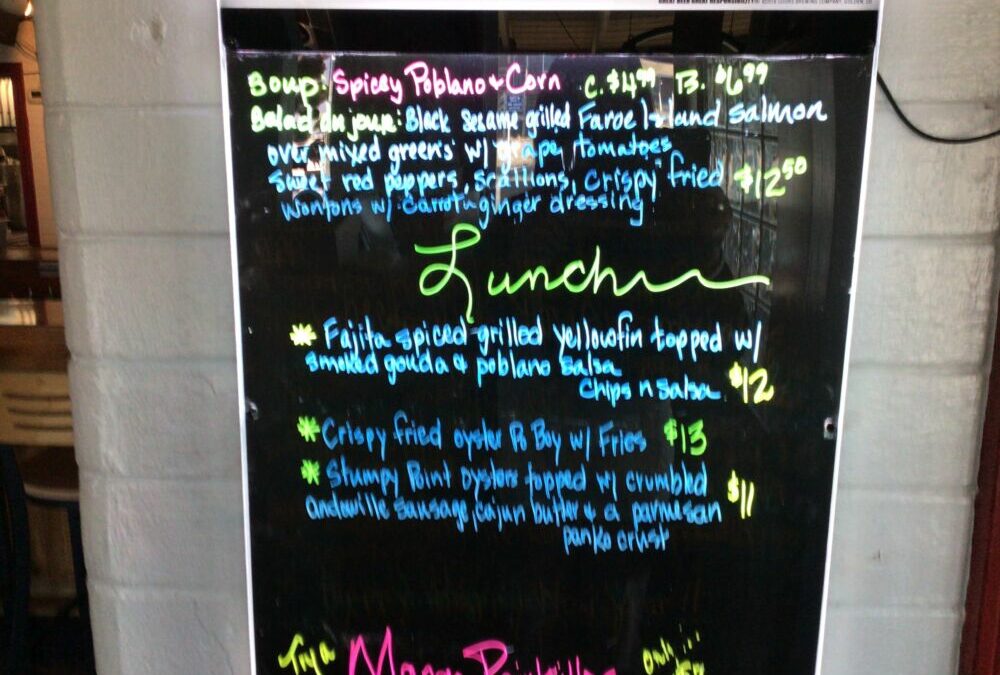 GREAT BEER GREAT RESPONSIBILITY
Boup: Spicey Poblano & Corn C. $4.99 B. $6.99
Balad du jour: Black sesame grilled Faroe Island salmon
over mixed greens w/ grape tomatoes
sweet red peppers, scallions, crispy fried $12.50
wontons w/ carrot-ginger dressing
Lunch
Fajita spiced grilled yellowfin topped w/
smoked gouda & poblano salsa
Chips n salsa. $12
Crispy fried oyster Po Boy w/ Fries $13
Stumpy Point oysters topped w/ crumbled $11
andouille sausage, cajun butter & a parmesan
panko crust
Only